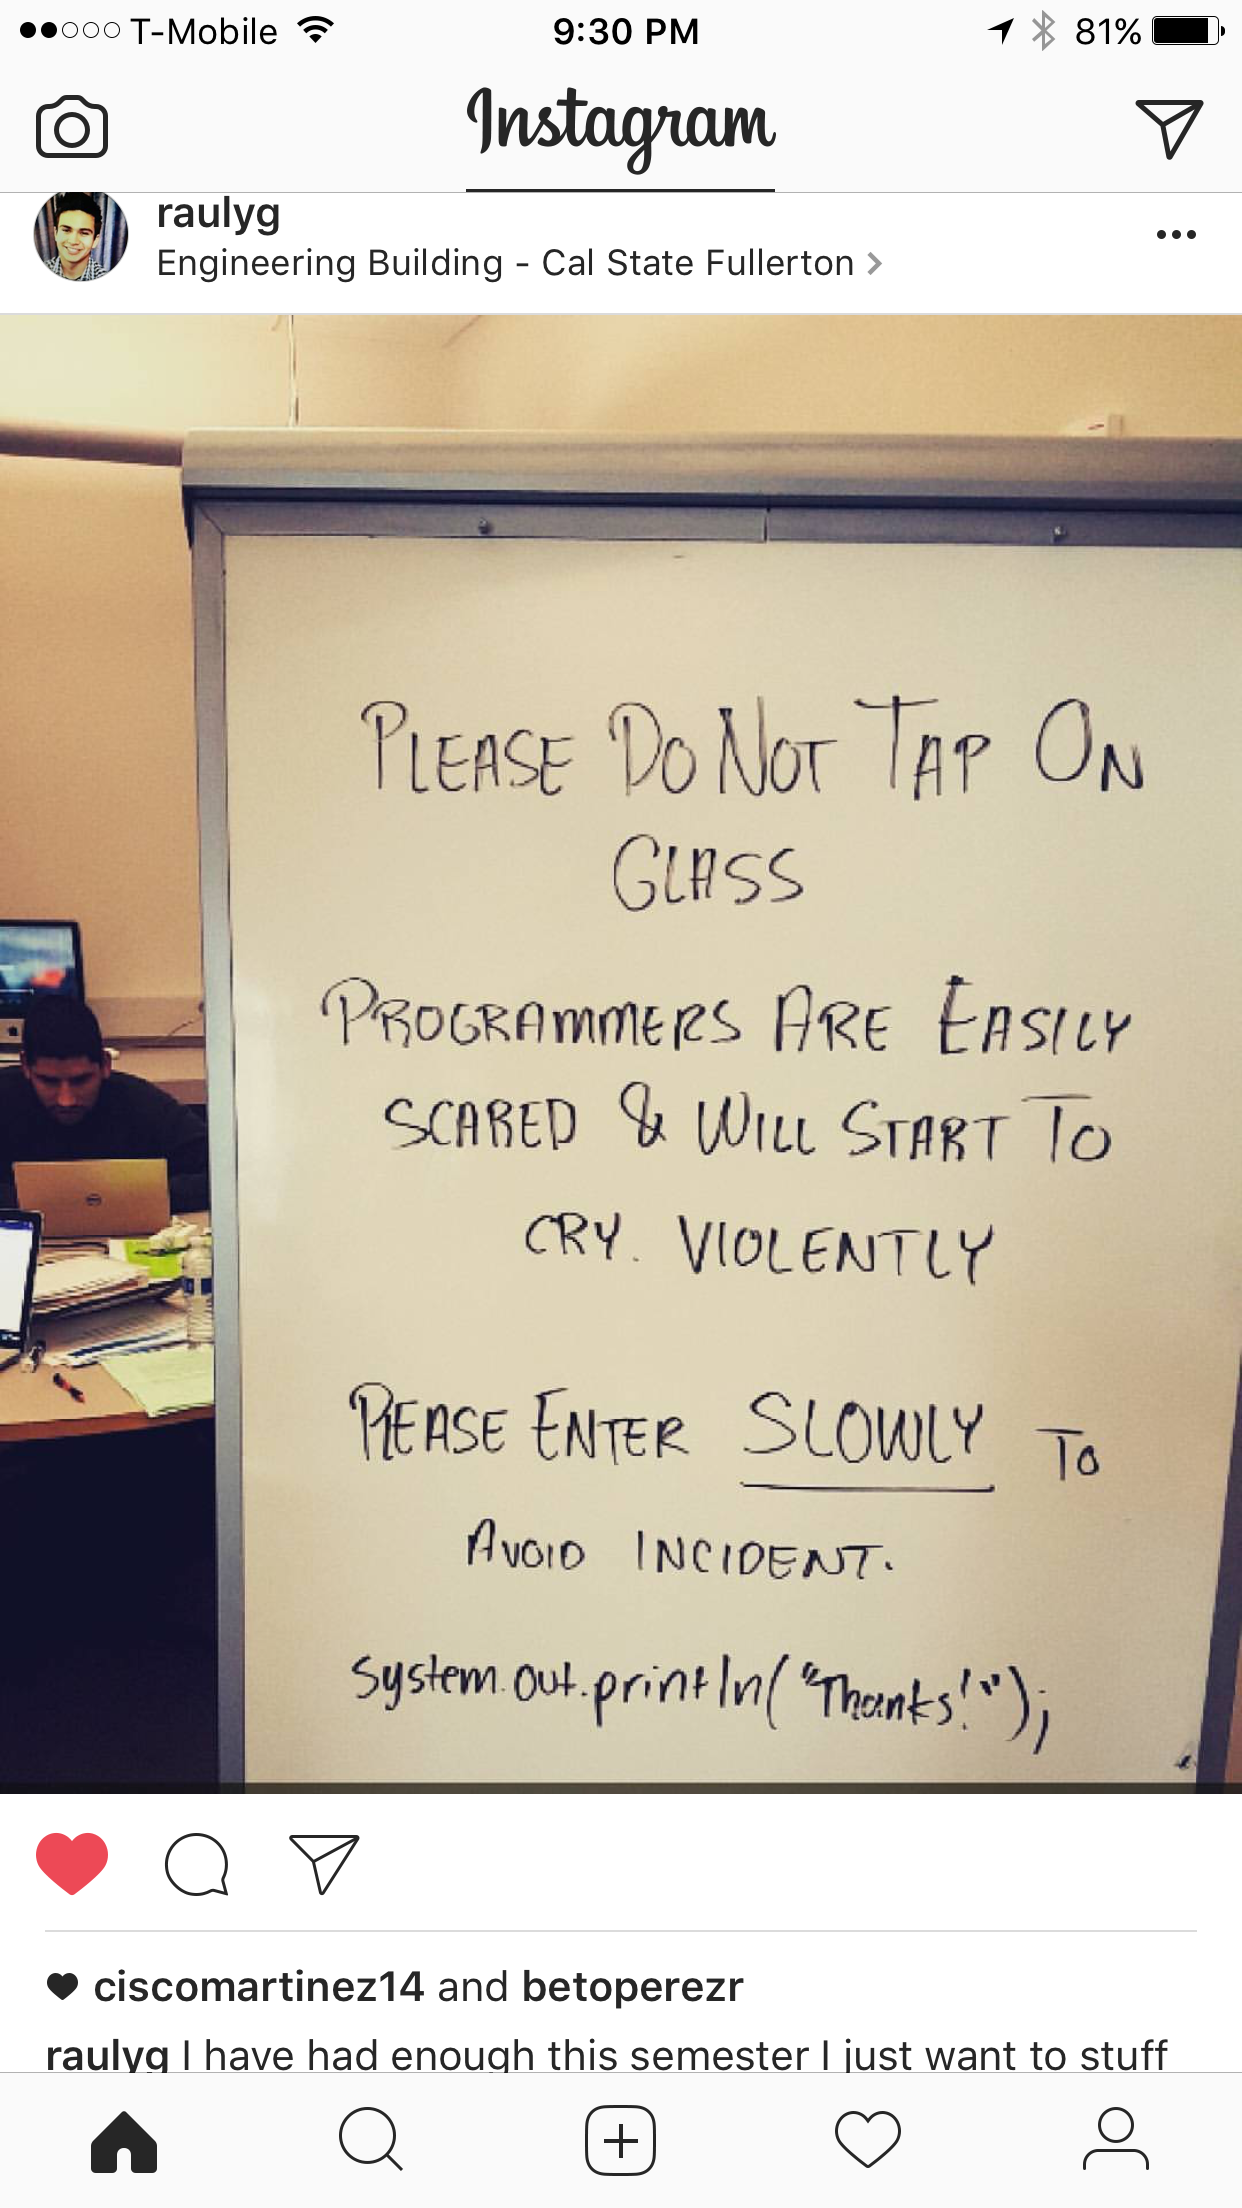 T-Mobile
9:30 PM
81%
Instagram
raulyg
Engineering Building - Cal State Fullerton
PLEASE DO NOT TAP ON
GLASS
PROGRAMMERS ARE EASILY
SCARED & WILL START TO
CRY. VIOLENTLY
PLEASE ENTER SLOWLY TO
AVOID INCIDENT.
system.out.println("Thanks!");
ciscomartinez14 and betoperezr
raulyg I have had enough this semester I just want to stuff